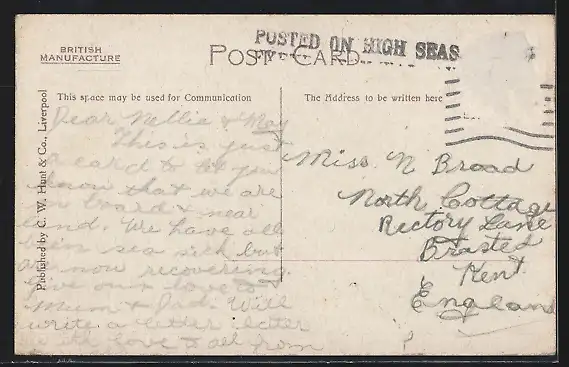 BRITISH
MANUFACTURE
POST CARD
POSTED ON HIGH SEAS
This space may be used for Communication
The Address to be written here
Published by C. W. Hunt & Co., Liverpool
Dear Nellie & May
This is just
a card to let you
know that we are
on board & near
land. We have all
been sea sick but
are now recovering.
Give our love to
Mum & Dad. Will
write a letter later
love & all from
Miss N Broad
North Cottage
Rectory Lane
Brasted
Kent
England